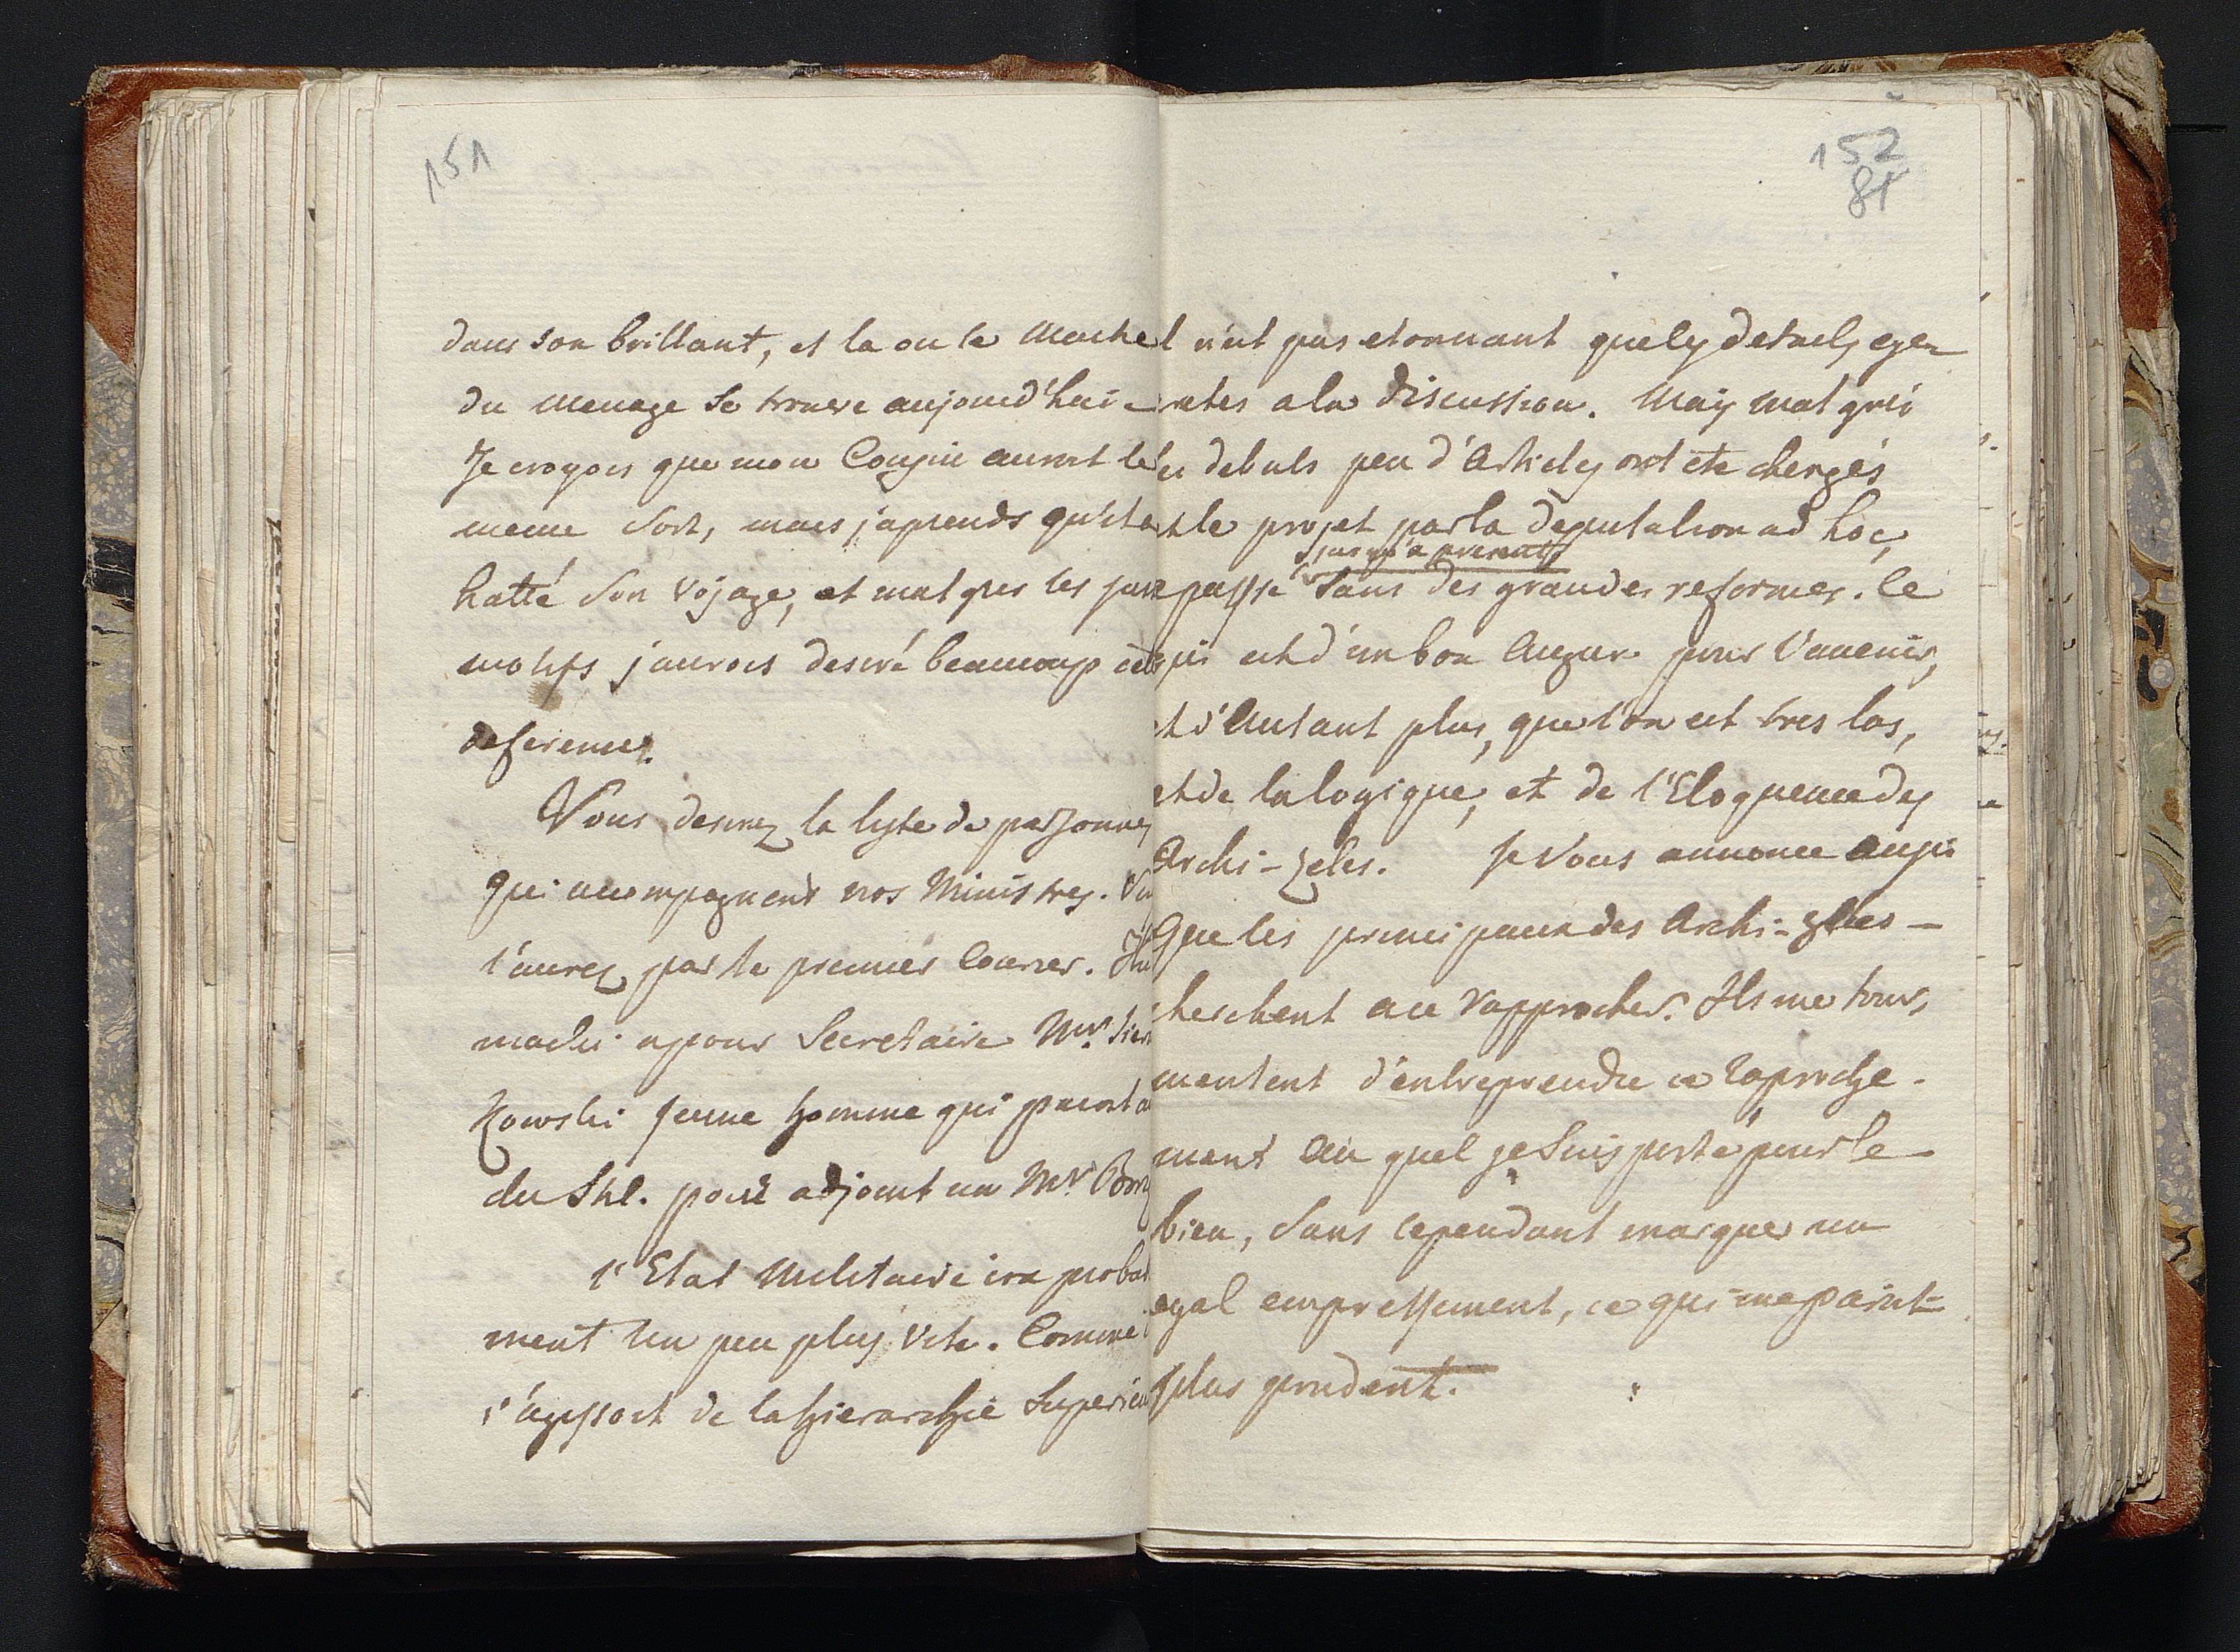 151
dans son brillant, et la ou le
du menage se trouve aujourd'hui
Je croyois que mon Cousin auroit le
meme sort, mais j'aprends qu'il a
hatté son voyage, et malgres les
motifs j'aurois desiré beaucoup
deference.
Vous desirez la lyste de personnes
qui accompagnent nos Ministres.
l'aurez par le premier Courier.
a pour Secretaire Mr.
kowski jeune homme qui
du Skl. pour adjoint un Mr
l'Etat Militaire ira
ment un peu plus vite. Comme
s'agissoit de la hierarchie
152
81
n'est pas etonnant que les details
a la discussion. Mais malgré
debuts peu d'Articles ont ete
le projet par la deputation ad hoc,
jusqu'a present
passé sans des grandes reformes. Ce
qui est d'un bon Augure pour l'avenir,
et d'Autant plus, que l'on est tres las,
et de la logique, et de l'Eloquence des
Archi-zeles. Je vous annonce aussi
Que les principaux des Archi-zeles
cherchent a se rapprocher. Ils me tour,
mentent d'entreprendre ce raproche-
ment au quel je suis porté pour le
bien, sans cependant marquer un
egal empressement, ce qui me paroit
plus prudent.